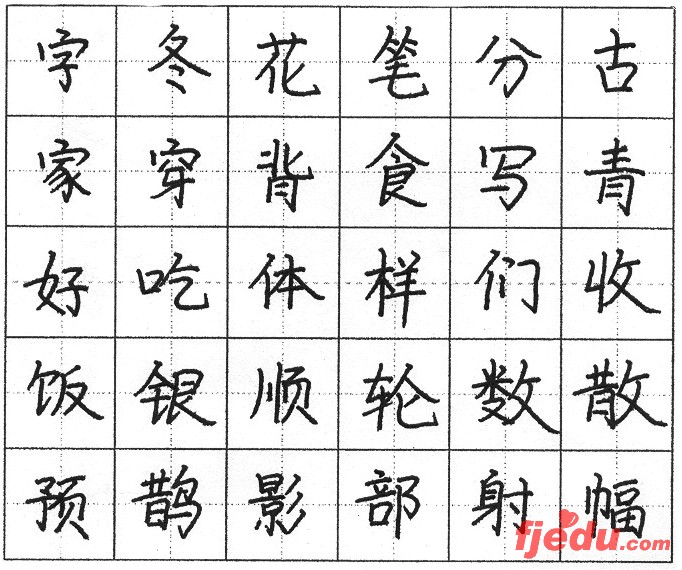 字冬花笔分古
家穿背食写青
好吃体样们收
饭银顺轮数散
预鹊影部射幅
fjedu.com